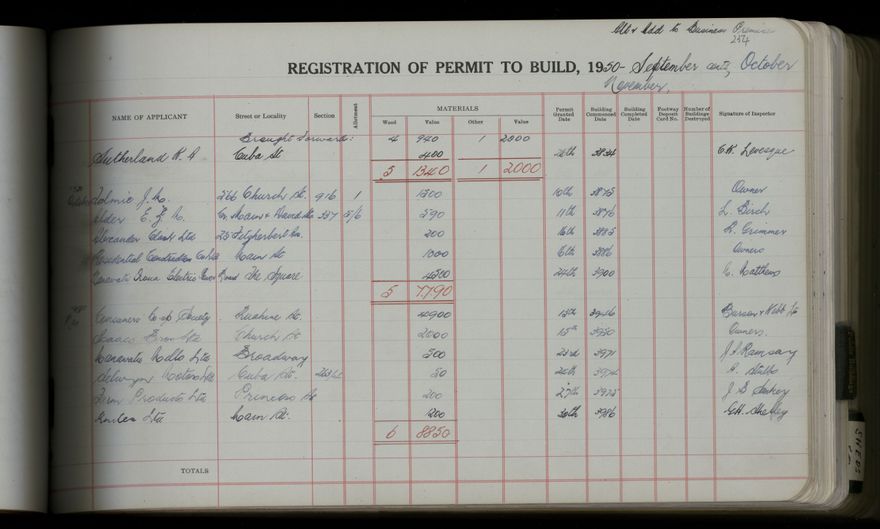 Alt & Add to Business Premises
254
REGISTRATION OF PERMIT TO BUILD, 1950- September cont, October
November.
NAME OF APPLICANT Street or Locality Section Allotment MATERIALS Permit Granted Date Building Commenced Date Building Completed Date Footway Deposit Card No. Number of Buildings Destroyed Signature of Inspector
Wood Value Other Value
Brought Forward: 4 940 1 2000
Sutherland R. A Cuba St 400 26th 3834 C.K. Levesque
5 1340 1 2000
J. 266 Church St. 916 1 1300 10th 3875 Owner
Elder E. J. Cr. Main & David St 337 5/6 590 11th 3876 L. Birch
Alexander Clark Ltd 25 Fitzherbert Av. 200 16th 3885 R. Grammer
Residential Construction Main St 1000 16th 3886 Owners
Manawatu Oroua Electric Power Board The Square 4500 24th 3900 C. Matthews
5 7790
Consumers Co-op Society Ruahine St. 4900 13th 3946
Isaacs Bros Ltd Church St 2800 15th 3950 Owners.
Manawatu Mills Ltd Broadway 500 23rd 3971 J. S. Ramsay
Selwyn Motors Ltd Cuba St. 50 24th 3974 Stubbs
Farm Products Ltd Princess St 200 27th 3975
Ltd Main St. 200 30th 3986
6 8850
TOTALS
SHEDS